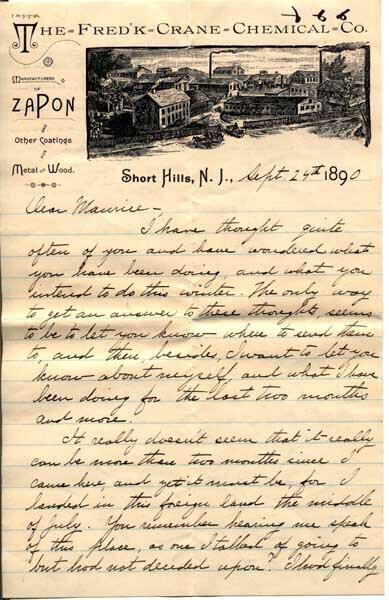 The-Fred'k-Crane-Chemical-Co.
Manufacturers
of
ZAPON
and
Other Coatings
for
Metal and Wood.
Short Hills, N. J., Sept. 24th 1890
Dear Maurice-,
I have thought quite
often of you and have wondered what
you have been doing, and what you
intend to do this winter. The only way
to get an answer to these thoughts, seems
to be to let you know where to send them
to, and then, besides, I want to let you
know about myself and what I have
been doing for the last two months
and more.
It really doesn't seem that it really
can be more than two months since I
came here, and yet it must be, for I
landed in this foreign land the middle
of July. You remember hearing me speak
of this place, as one I talked of going to
"but had not decided upon". I had finally